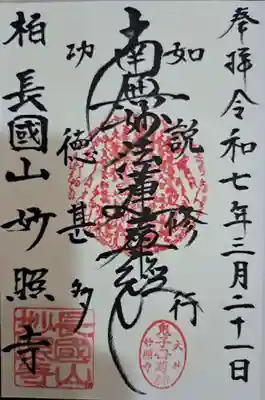 奉拝 令和七年三月二十一日
如説修行
南無妙法蓮華経
功徳甚多
柏 長國山 妙照寺
長國山
妙照寺